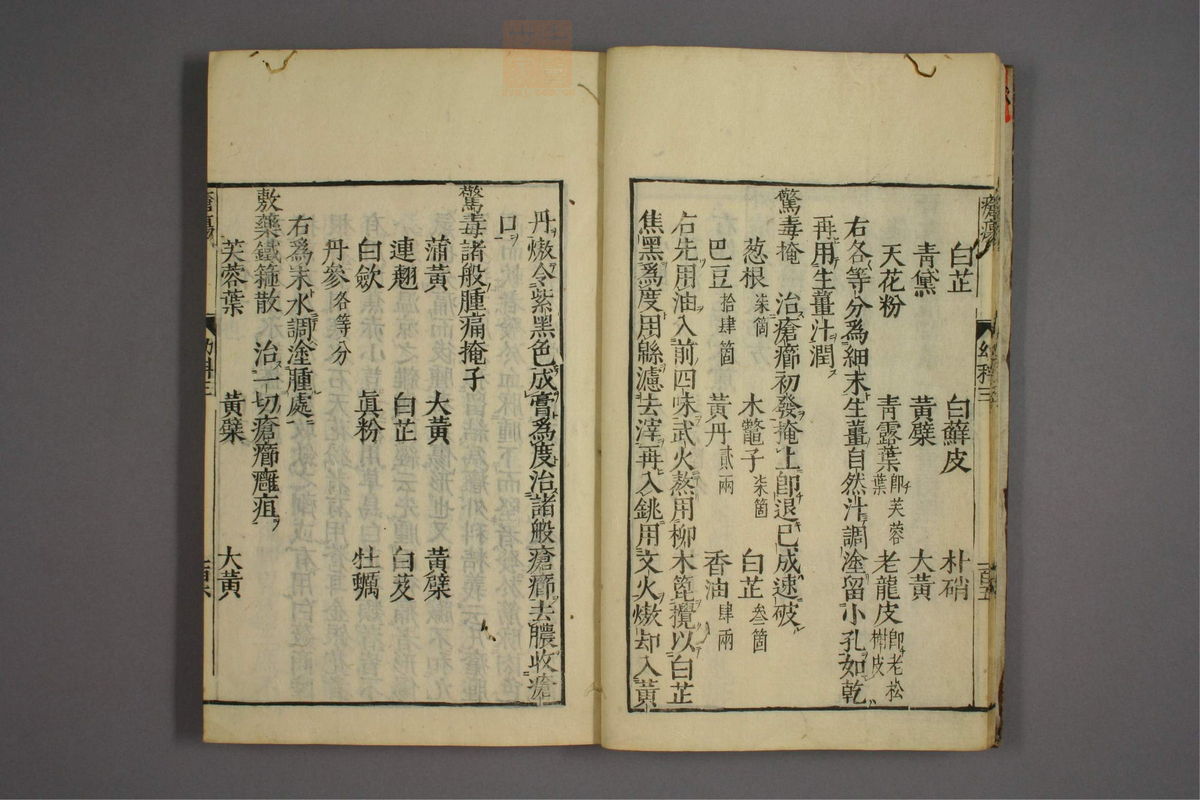 白芷　白蘚皮　朴硝
青黛　黃檗　大黃
天花粉　青露葉即芙蓉葉　老龍皮即老松樹皮
右各等分爲細末生薑自然汁調塗留小孔如乾
再用生薑汁潤
驚毒掩　治瘡癤初發掩上即退已成速破
葱根柒箇　木鼈子柒箇　白芷叁箇
巴豆拾肆箇　黃丹貳兩　香油肆兩
右先用油入前四味武火熬用柳木篦攪以白芷
焦黑爲度用綿濾去滓再入銚用文火熬却入黃
丹熬令紫黑色成膏爲度治諸般瘡癤去膿收瘡
口
驚毒諸般腫痛掩子
蒲黃　大黃　黃檗
連翹　白芷　白芨
白歛　眞粉　牡蠣
丹參各等分
右爲末水調塗腫處
敷藥鐵箍散　治一切瘡癤癰疽
芙蓉葉　黃檗　大黃